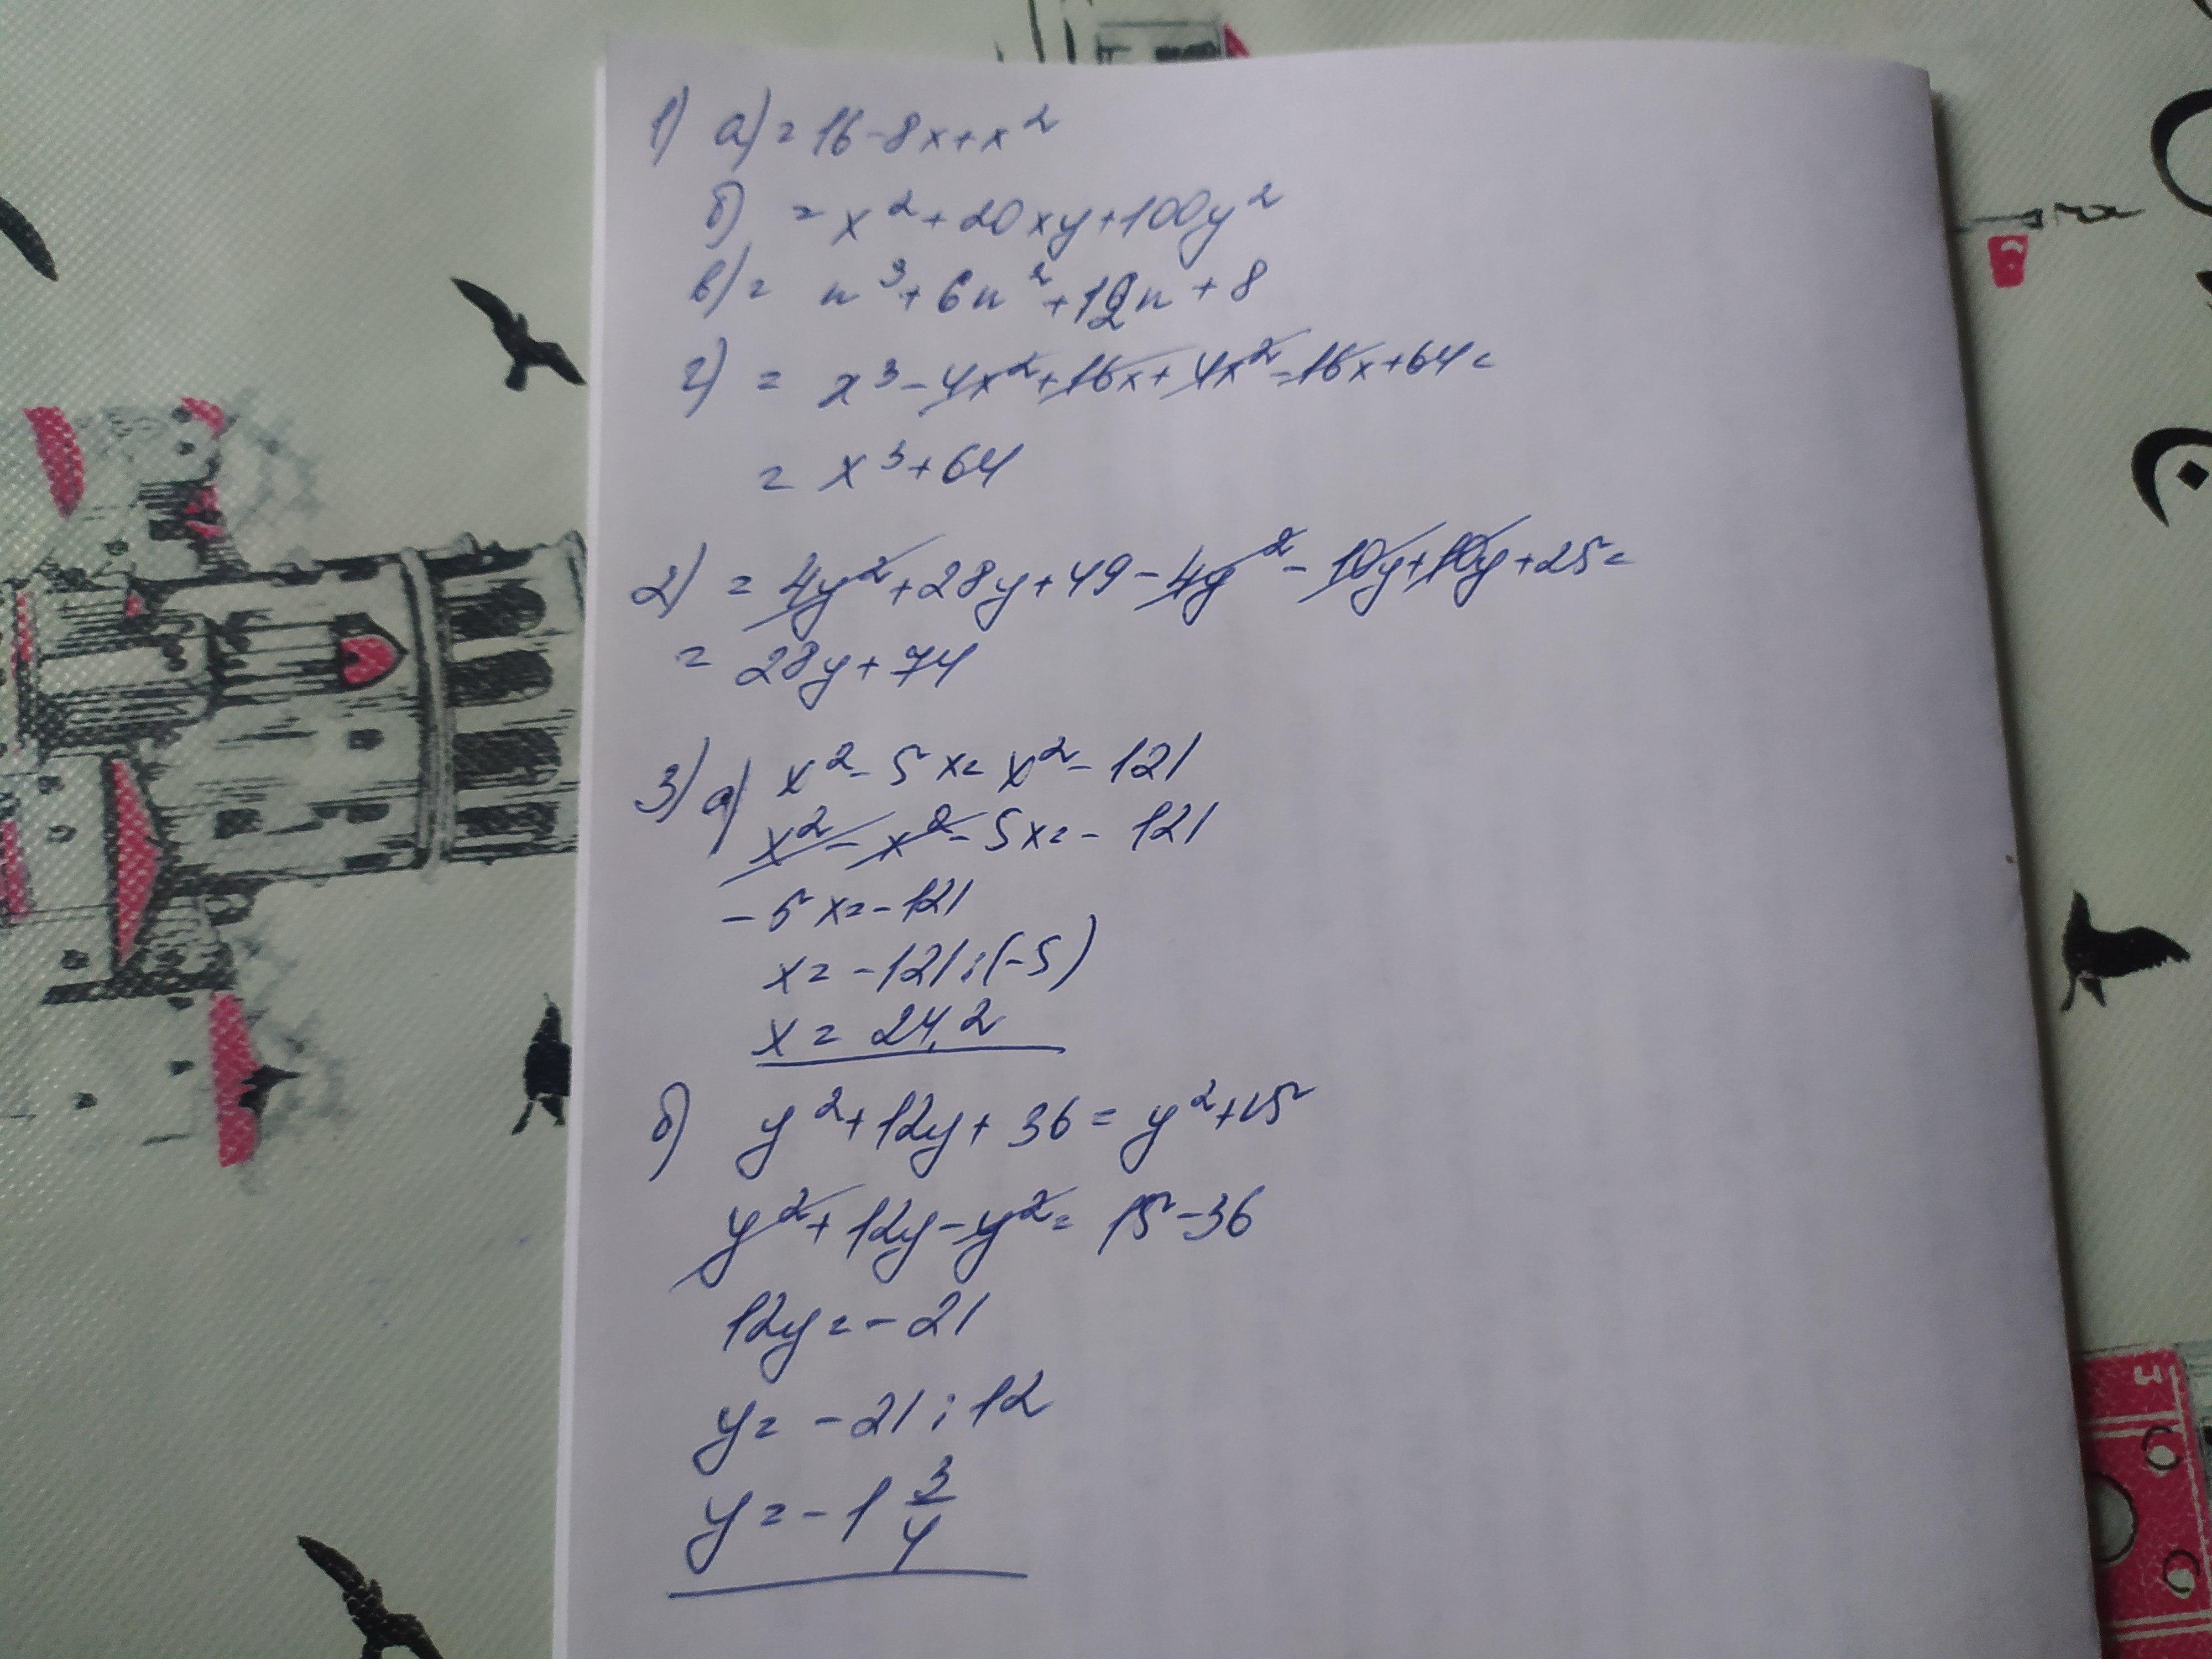 1) а) = 16-8x+x²
б) = x²+20xy+100y²
в) = n³+6n²+12n+8
г) = x³-4x²+16x+4x²-16x+64=
= x³+64
2) = 4y²+28y+49-4y²-10y+10y+25=
= 28y+74
3) а) x²-5x=x²-121
x²-x²-5x=-121
-5x=-121
x=-121:(-5)
x=24,2
б) y²+12y+36=y²+15
y²+12y-y²=15-36
12y=-21
y=-21:12
y=-1 3/4